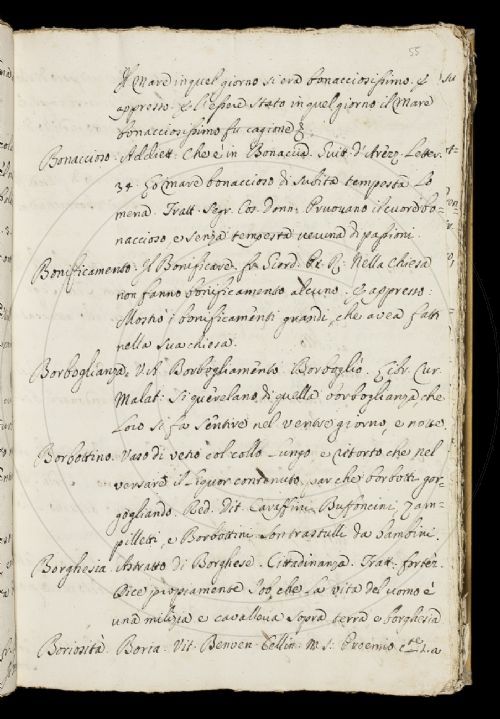 55
Il Mare in quel giorno si era bonacciosissimo. E
appresso. E l'essere stato in quel giorno il Mare
bonacciosissimo fu cagione
Bonaccioso. Addiett. Che è in Bonaccia. Guitt. d'Arezz. Letter.
34. Eo mare bonaccioso di subita tempesta Lo
mena. Tratt. Segr. Cos. Donn. Pruovano il cuor di bo-
naccioso, e senza tempesta veruna di passioni.
Bonificamento. Il Bonificare. Fr. Giord. Pr. R. Nella Chiesa
non fanno bonificamento alcuno. E appresso.
Mostrò i bonificamenti grandi, che avea fatti
nella sua chiesa.
Borboglianza. V. A. Borbogliamento. Borboglio. Libr. Cur.
Malat. Si querelano di quella borboglianza, che
loro si fa sentire nel ventre giorno, e notte.
Borbottino. Vaso di vetro col collo lungo e ritorto che nel
versare il liquor contenuto, par che borbotti gor-
gogliando. Red. Dit. Caraffini, Buffoncini, Zam-
pilletti, e Borbottini contrastulli da bambini.
Borghesia. Astratto di Borghese. Cittadinanza. Tratt. Fortez.
Dice propiamente Iob, che la vita del uomo è
una milizia e cavalleria sopra terra e borghesia
Boriosità. Boria. Vit. Benven. Cellin. M. S. Proemio. La